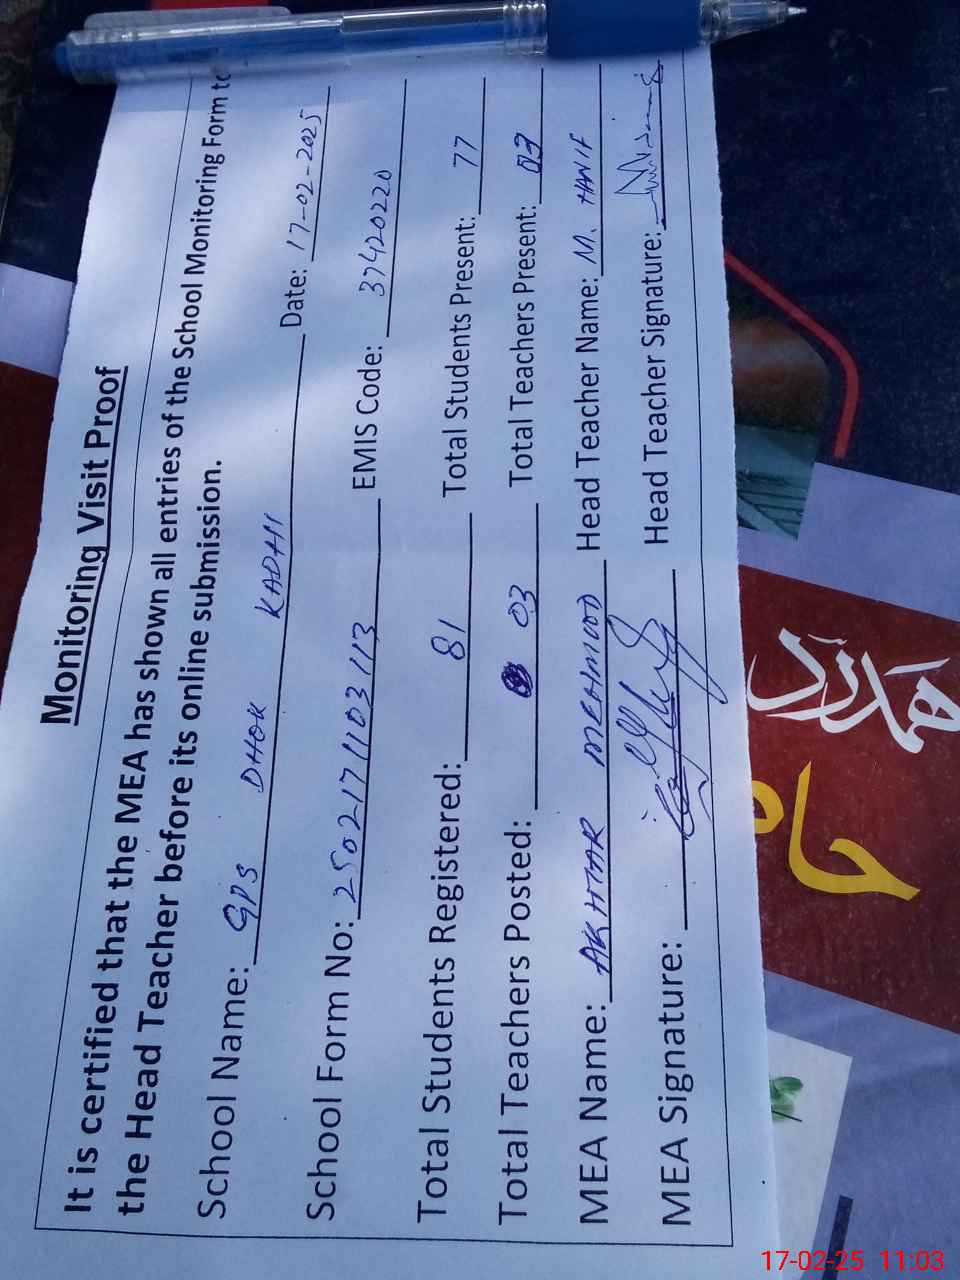 Monitoring Visit Proof
It is certified that the MEA has shown all entries of the School Monitoring Form to
the Head Teacher before its online submission.
School Name: GPS DHOK KADHI Date: 17-02-2025
School Form No: 250217 1103113 EMIS Code: 37420220
Total Students Registered: 81 Total Students Present: 77
Total Teachers Posted: 03 Total Teachers Present: 03
MEA Name: AKHTAR MEHMOOD Head Teacher Name: M. HANIF
MEA Signature: Head Teacher Signature:
ہمدرد
17-02-25 11:03